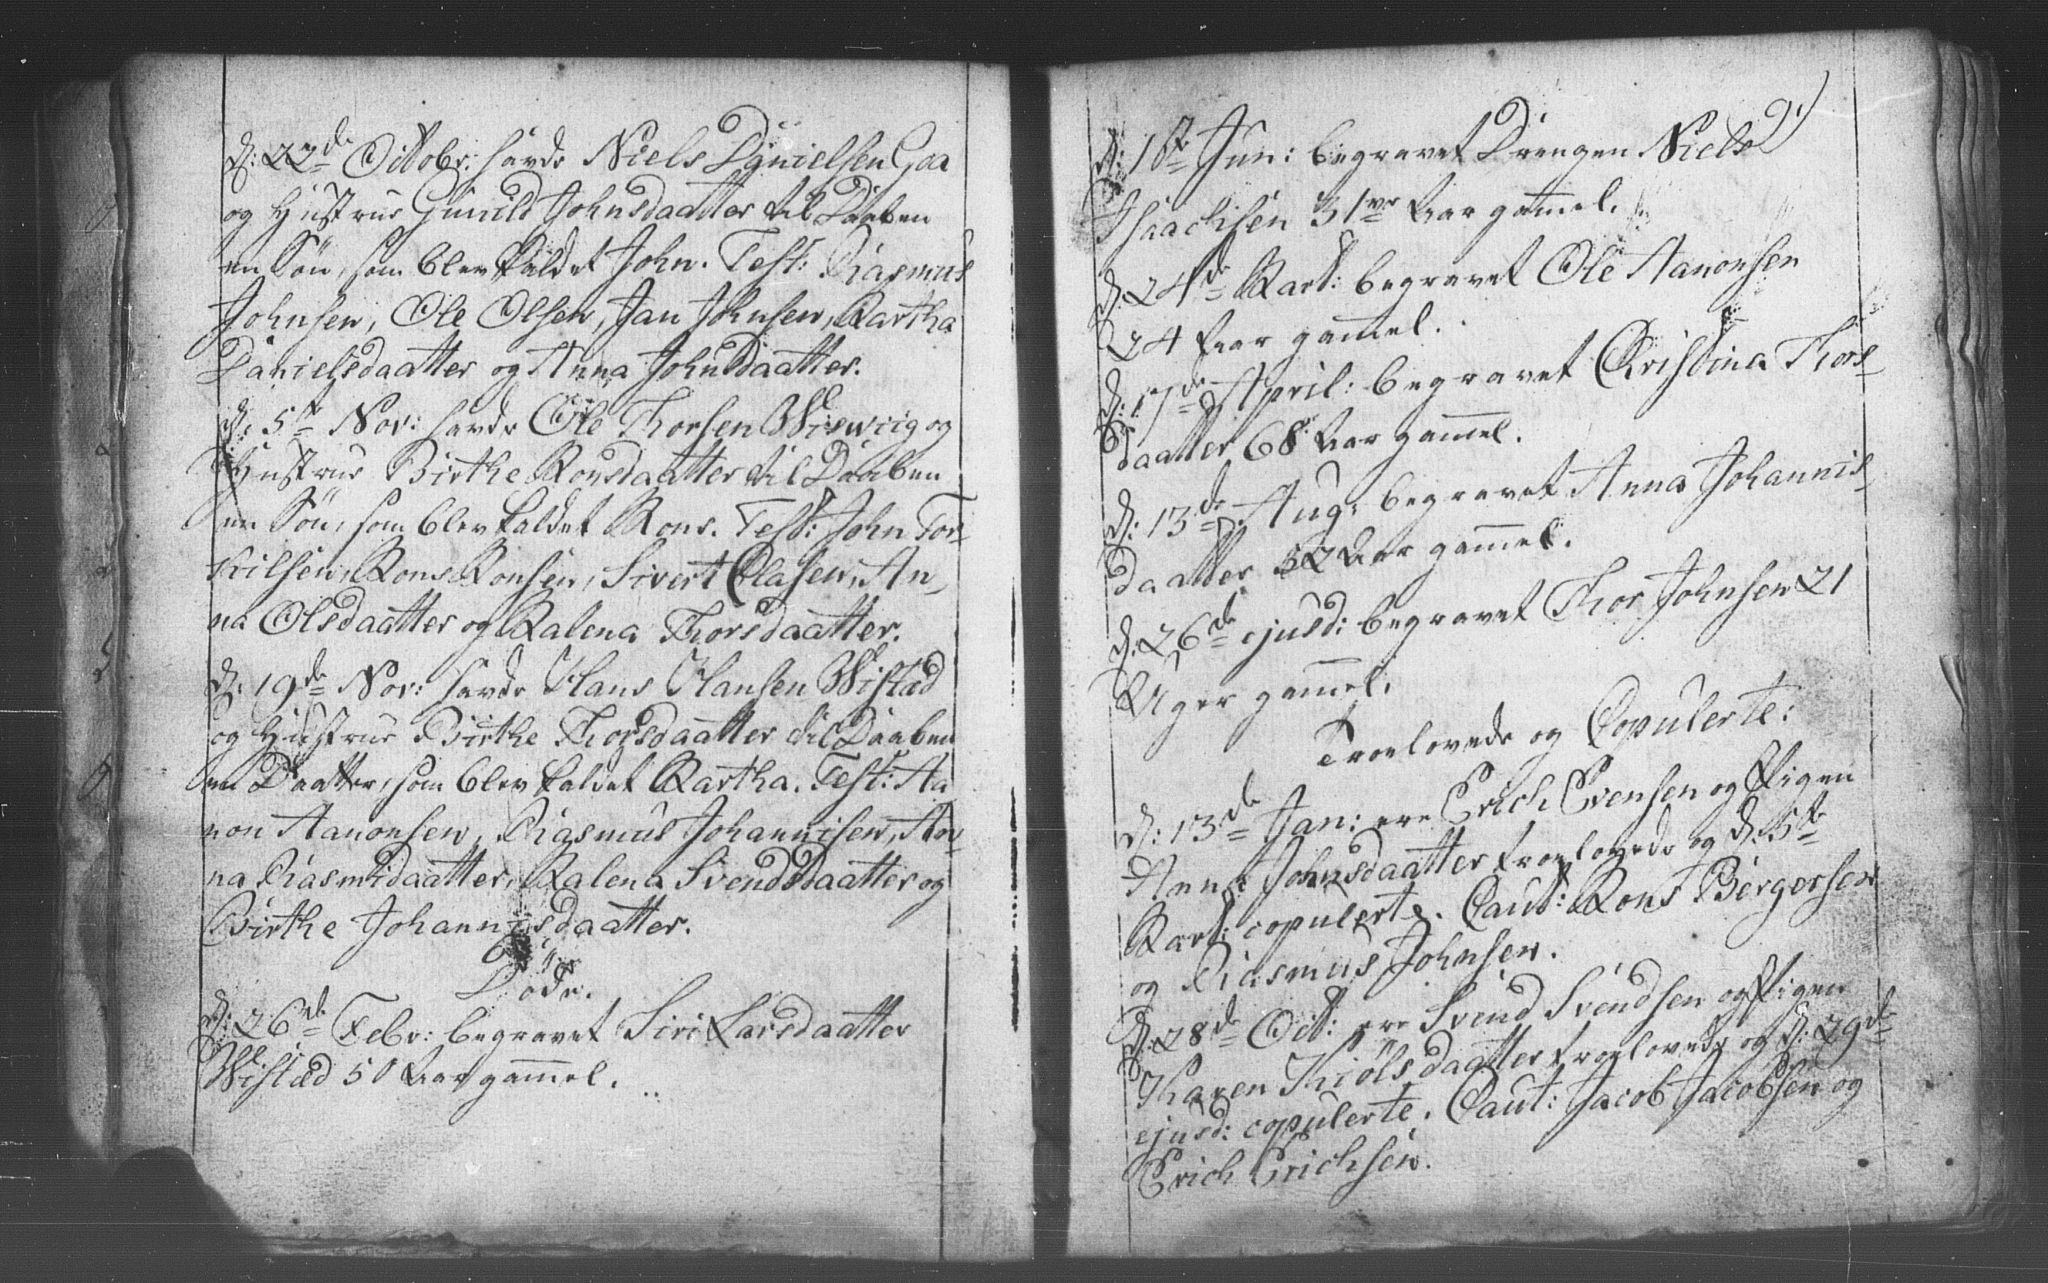 d: 22de Octobr: havde Niels Danielsen Gaa
og Hustrue Gunild Johnsdaatter til Daaben
en Søn, som blev kaldet John. Test: Rasmus
Johnsen, Ole Olsen, Jan Johnsen, Martha
Danielsdaatter og Anna Johnsdaatter.
d: 5te Nov: havde Ole Thorsen Wiswiig og
Hustrue Birthe Monsdaatter til Daaben
en Søn, som blev kaldet Mons. Test: John Tor-
kilsen, Mons Monsen, Sivert Olasen, An-
na Olsdaatter og Malena Thorsdaatter.
d: 19de Nov: havde Hans Hansen Wistad
og Hustrue Birthe Thorsdaatter til Daaben
en Daatter, som blev kaldet Martha. Test: Aa
non Aanonsen, Rasmus Johannisen, An-
na Rasmidaatter, Malena Svendsdaatter og
Birthe Johannisdaatter.
Døde.
d: 26de Febr: begravet Siri Larsdaatter
Wistad 50 Aar gammel.
9)
d: 16te Jun: begravet Drengen Niels
Isaachsen 31ve Aar gammel.
d: 24de Mart: begravet Ole Aanonsen
24 Aar gammel.
d: 17de April: begravet Christina Thors-
daatter 68 Aar gammel.
d: 13de Aug: begravet Anna Johannis-
daatter 52 Aar gammel.
d: 26de ejusd: begravet Thor Johnsen 21
Uger gammel.
Troelovede og Copulerte:
d: 13de Jan: ere Erich Evensen og Pigen
Anna Johnsdaatter troelovede og d: 5te
Mart: copulerte. Caut: Mons Bergersen
og Rasmus Johnsen.
d: 28de Oct: ere Svend Svendsen og Pigen
Karen Kiølsdaatter troelovede og d: 29de
ejusd: copulerte. Caut: Jacob Jacobsen og
Erich Erichsen.